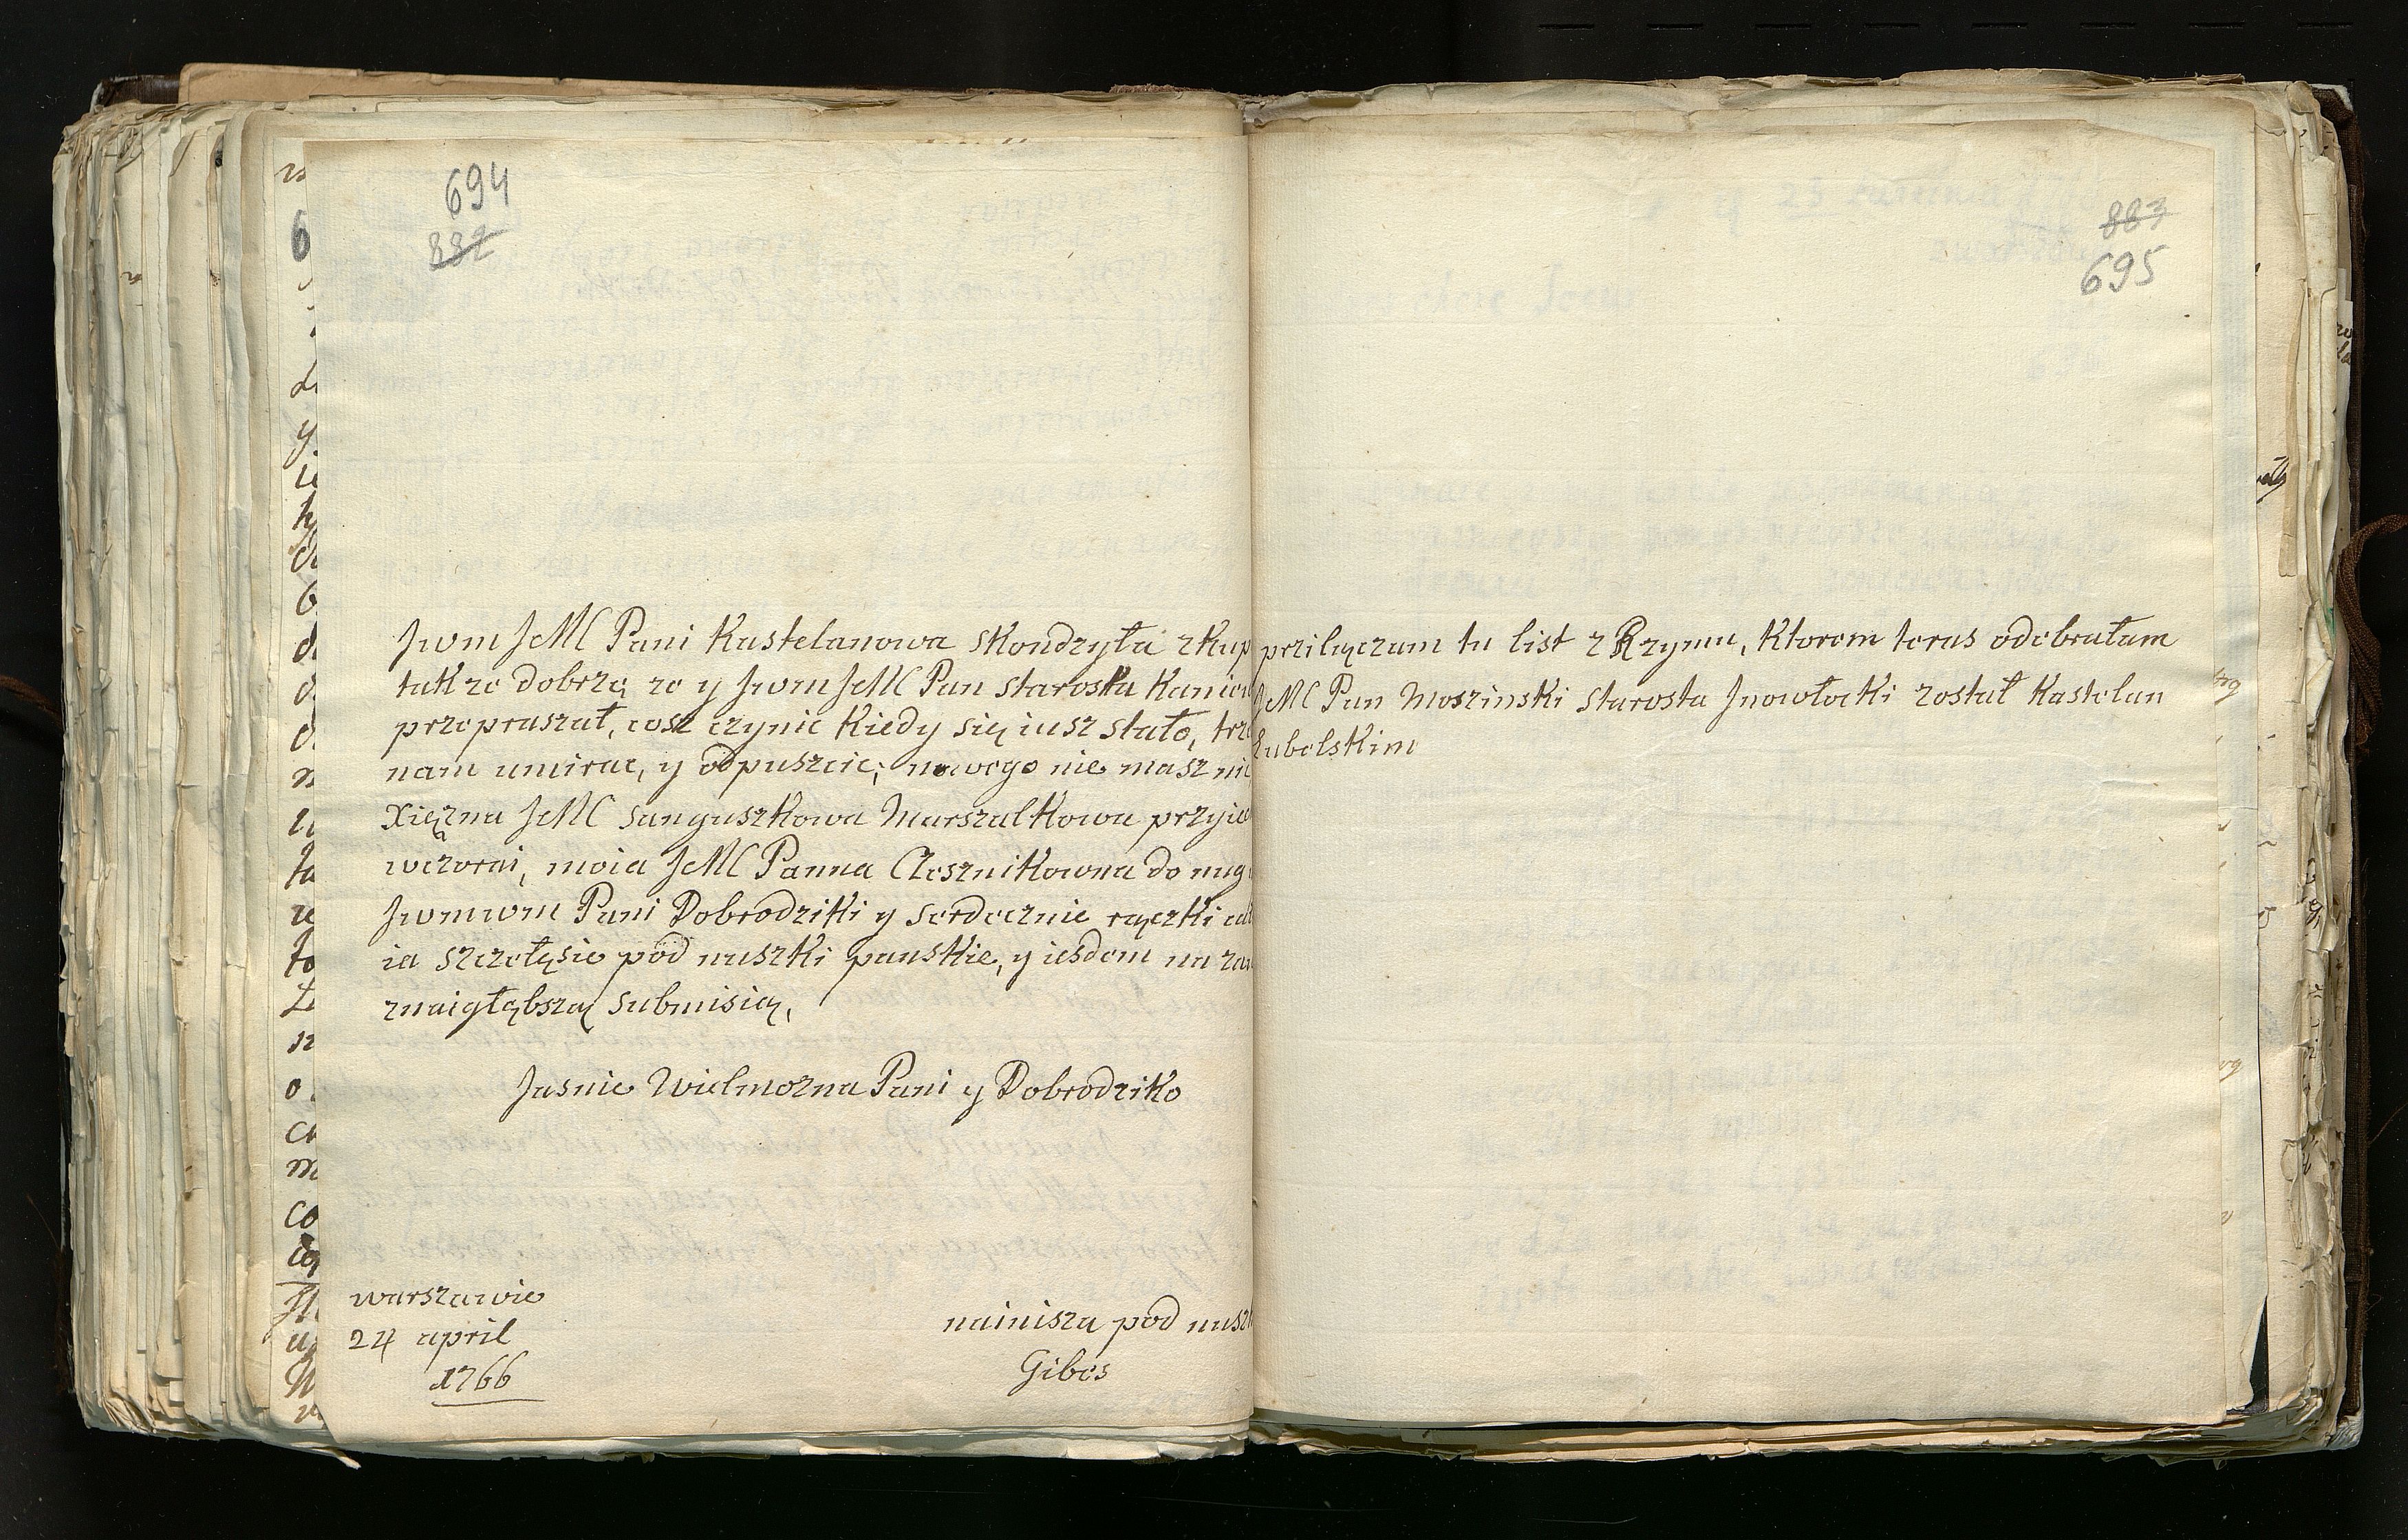 694
882
Jwm JeMC Pani Kastelanowa skondzyła zkup
tak ze dobrzę ze y JwmJeMC Pan starosta Kaniow
przepraszał, cosz czynic kiedy się iusz stało, trze
nam umirac, y odpuszcic; nowego nie masz nic
Xiężna JeMC sanguszkowa Marszalkowa przyie
wczorai, moia JeMC Panna Czesznikowna do nug
Jwmwm Pani Dobrodziki y serdecznie rączki cał
ia szczełęsie pod nuszki panskie, y iesdem na zaw
znaigłębszą submisią,
Jasnie Wielmozna Pani y Dobrodziko
warszawie
24 april
1766
nainisza pod nuszk
Gibes
883
695
przilączam tu list z Rzymu, ktorem teras odebrałam
JeMC Pan Moszinski starosta Jnowłocki został Kastelan
Lubelskim